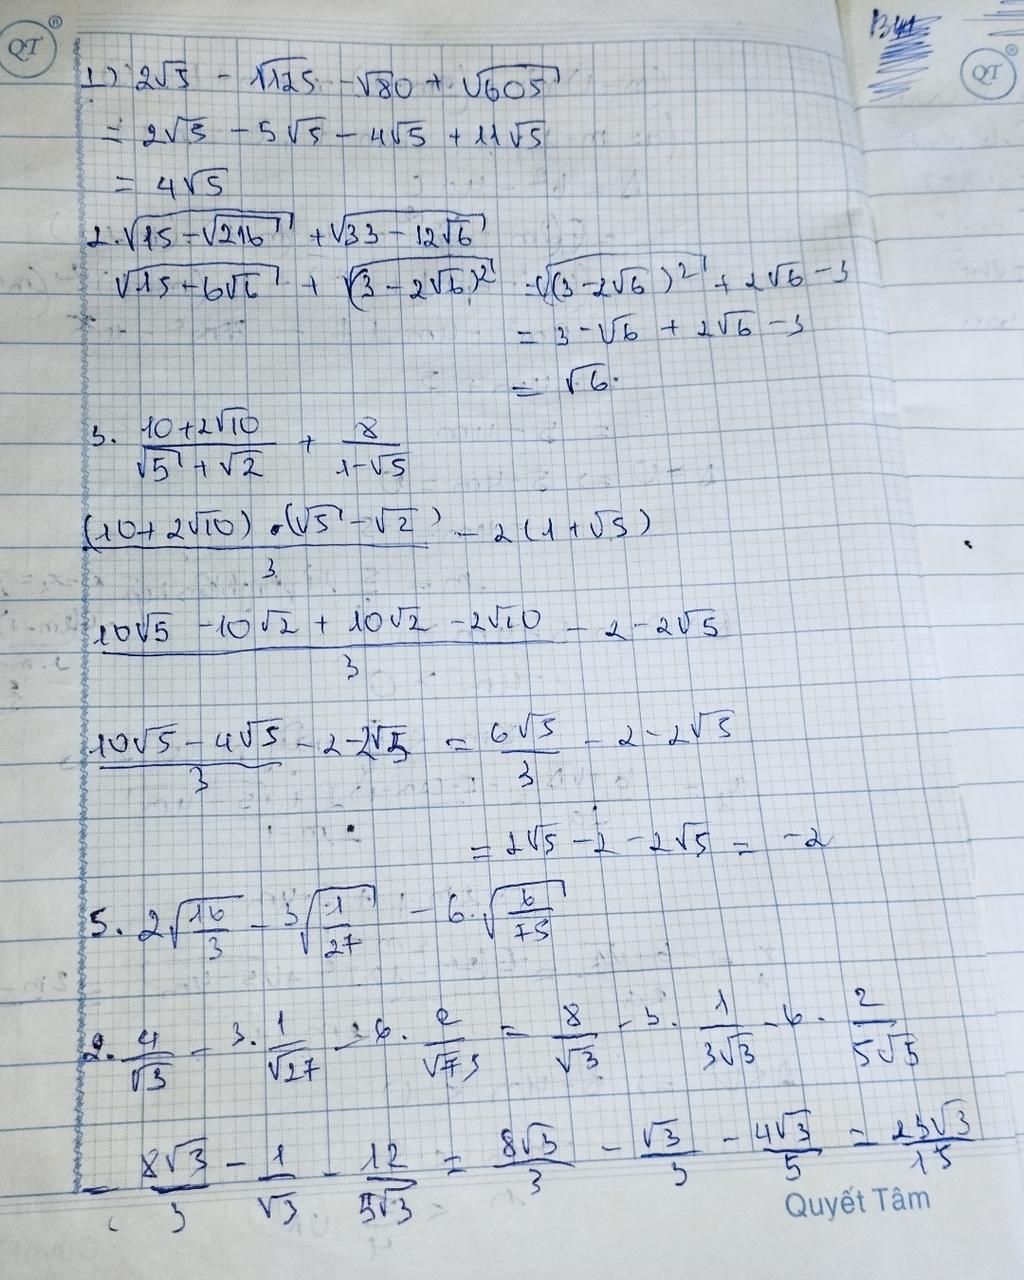 QT
B41
QT
1) 2√5 - √125 - √80 + √605
= 2√5 - 5√5 - 4√5 + 11√5
= 4√5
2. √(15 - √216) + √(33 - 12√6)
√(15 - 6√6) + √((3 - 2√6)²) = √((3 - 2√6)²) + 2√6 - 3
= 3 - √6 + 2√6 - 3
= √6.
3. (10 + 2√10)/(√5 + √2) + 8/(1 - √5)
((10 + 2√10) . (√5 - √2))/3 - 2(1 + √5)
(10√5 - 10√2 + 10√2 - 2√20)/3 - 2 - 2√5
(10√5 - 4√5)/3 - 2 - 2√5 = 6√5/3 - 2 - 2√5
= 2√5 - 2 - 2√5 = -2
5. 2√(16/3) - 3√(1/27) - 6.√(6/75)
2. 4/√3 - 3. 1/√27 - 6. 2/√75 = 8/√3 - 3. 1/3√3 - 6. 2/5√5
= 8√3/3 - 1/√3 - 12/5√3 = 8√3/3 - √3/3 - 4√3/5 = 23√3/15
Quyết Tâm